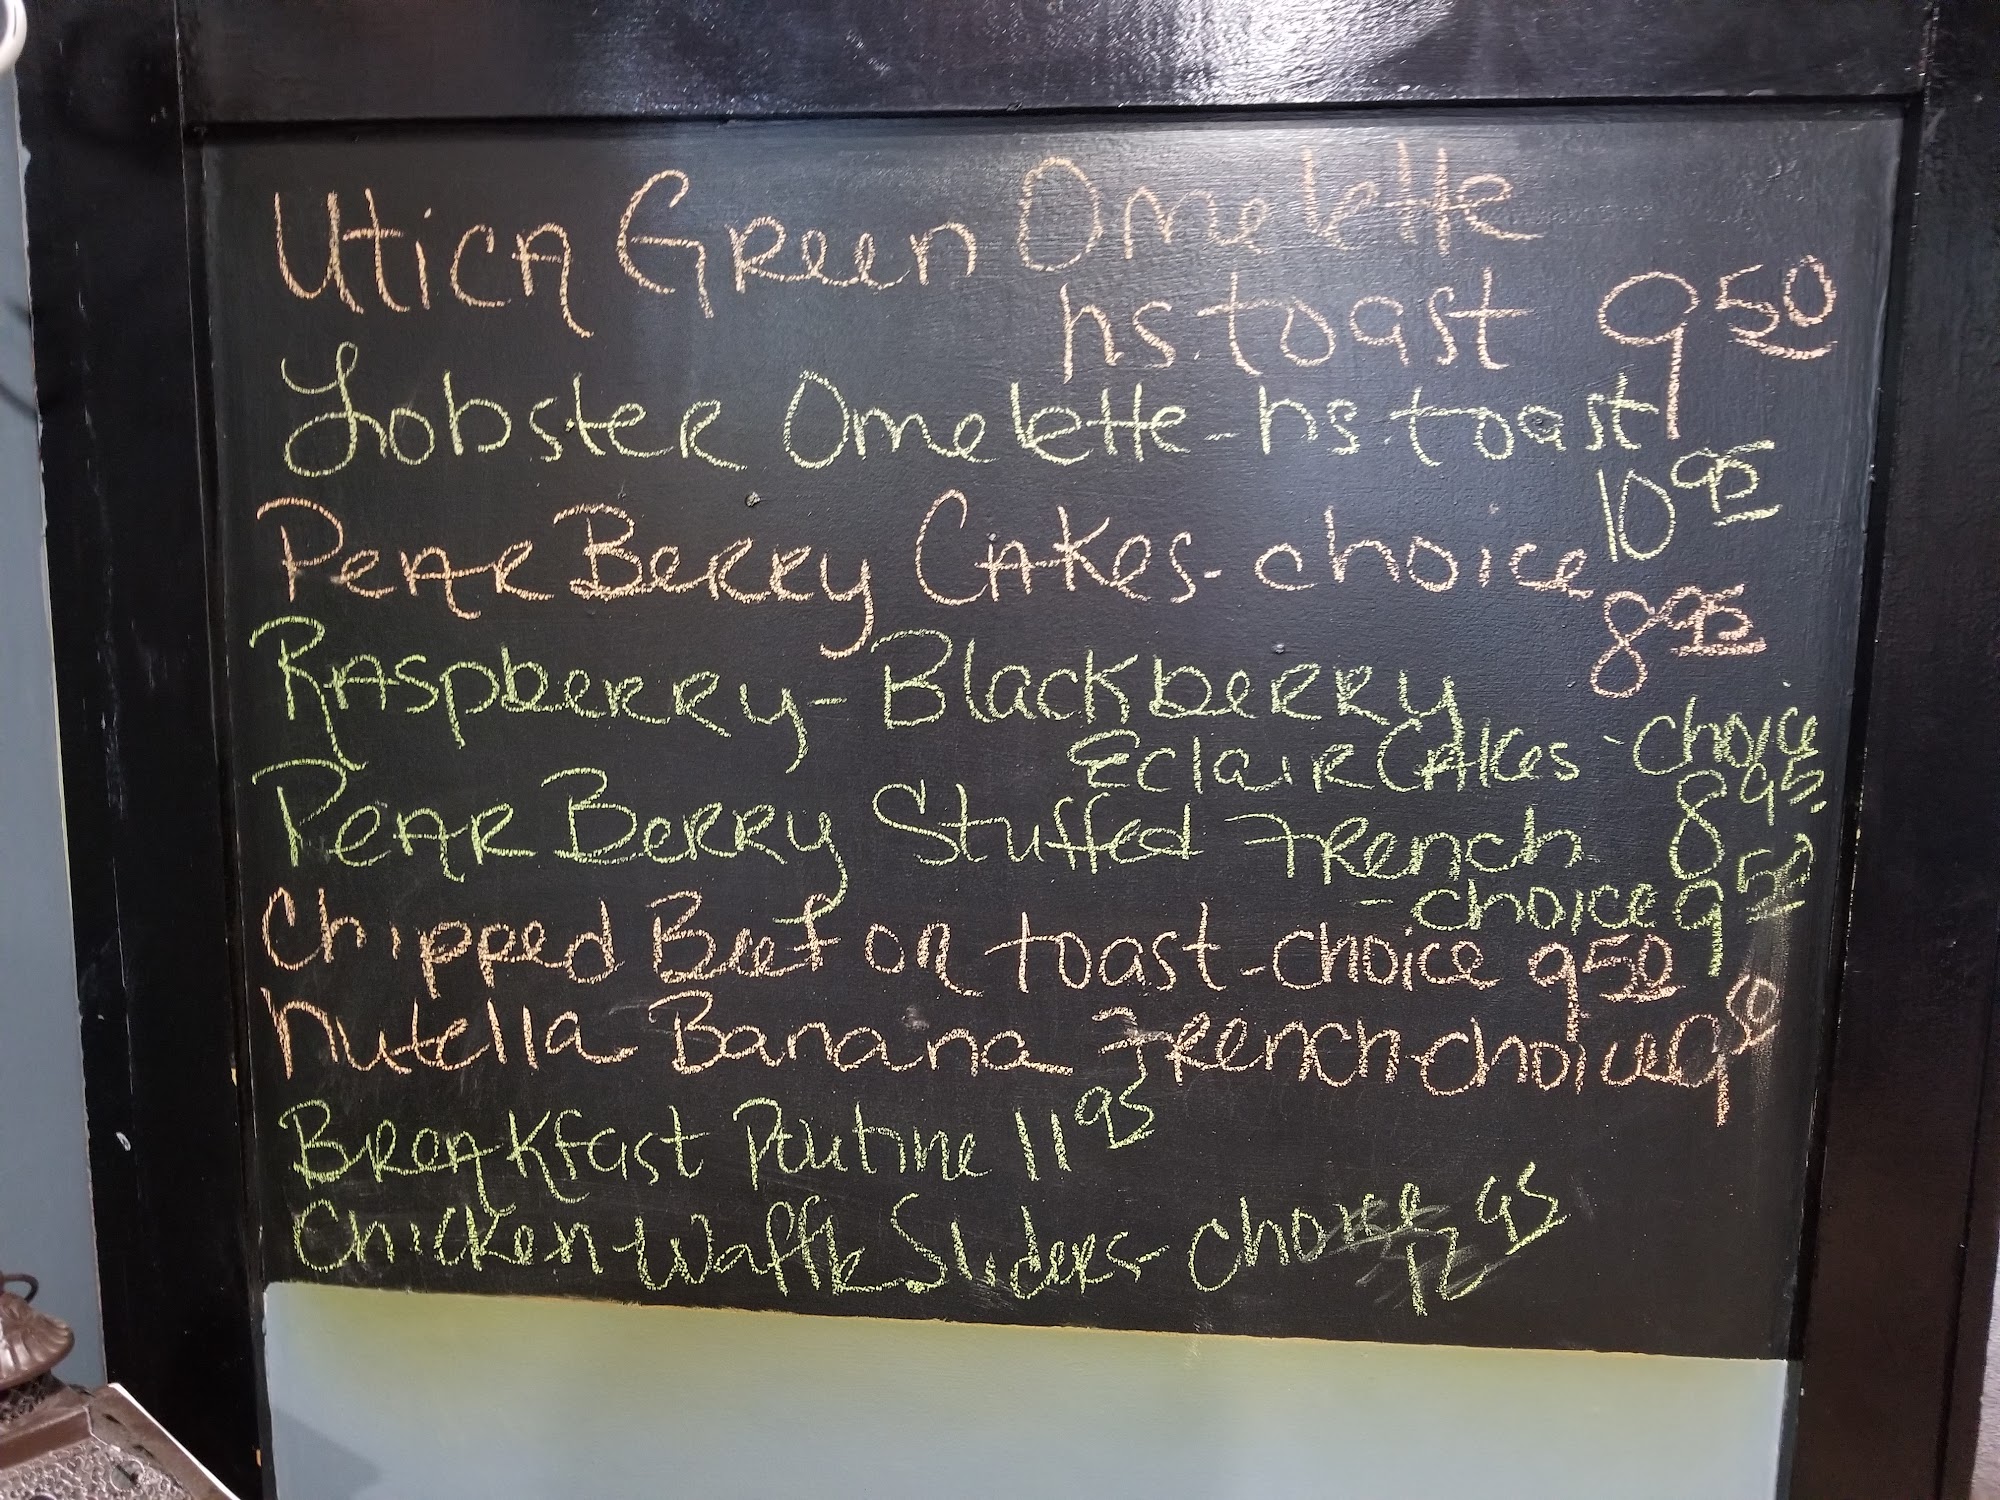 Utica Green Omelette
hs. toast 9 50
Lobster Omelette - hs. toast
10 95
Pear Berry Cakes - choice
8 95
Raspberry - Blackberry
Eclair Cakes - choice
8 95
Pear Berry Stuffed French
- choice 9 50
Chipped Beef on toast - choice 9 50
Nutella Banana French - choice 9 50
Breakfast Poutine 11 95
Chicken Waffle Sliders - choice 12 95